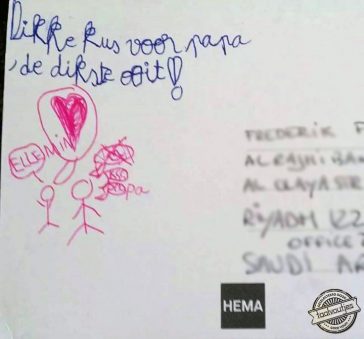 Dikke kus voor papa
'de dikste ooit!
ELLEMIN
papa
FREDERIK
AL RAJHI BA
AL OLAYA STR
RIYADH
OFFICE
SAUDI AR
HEMA
taalvoutjes